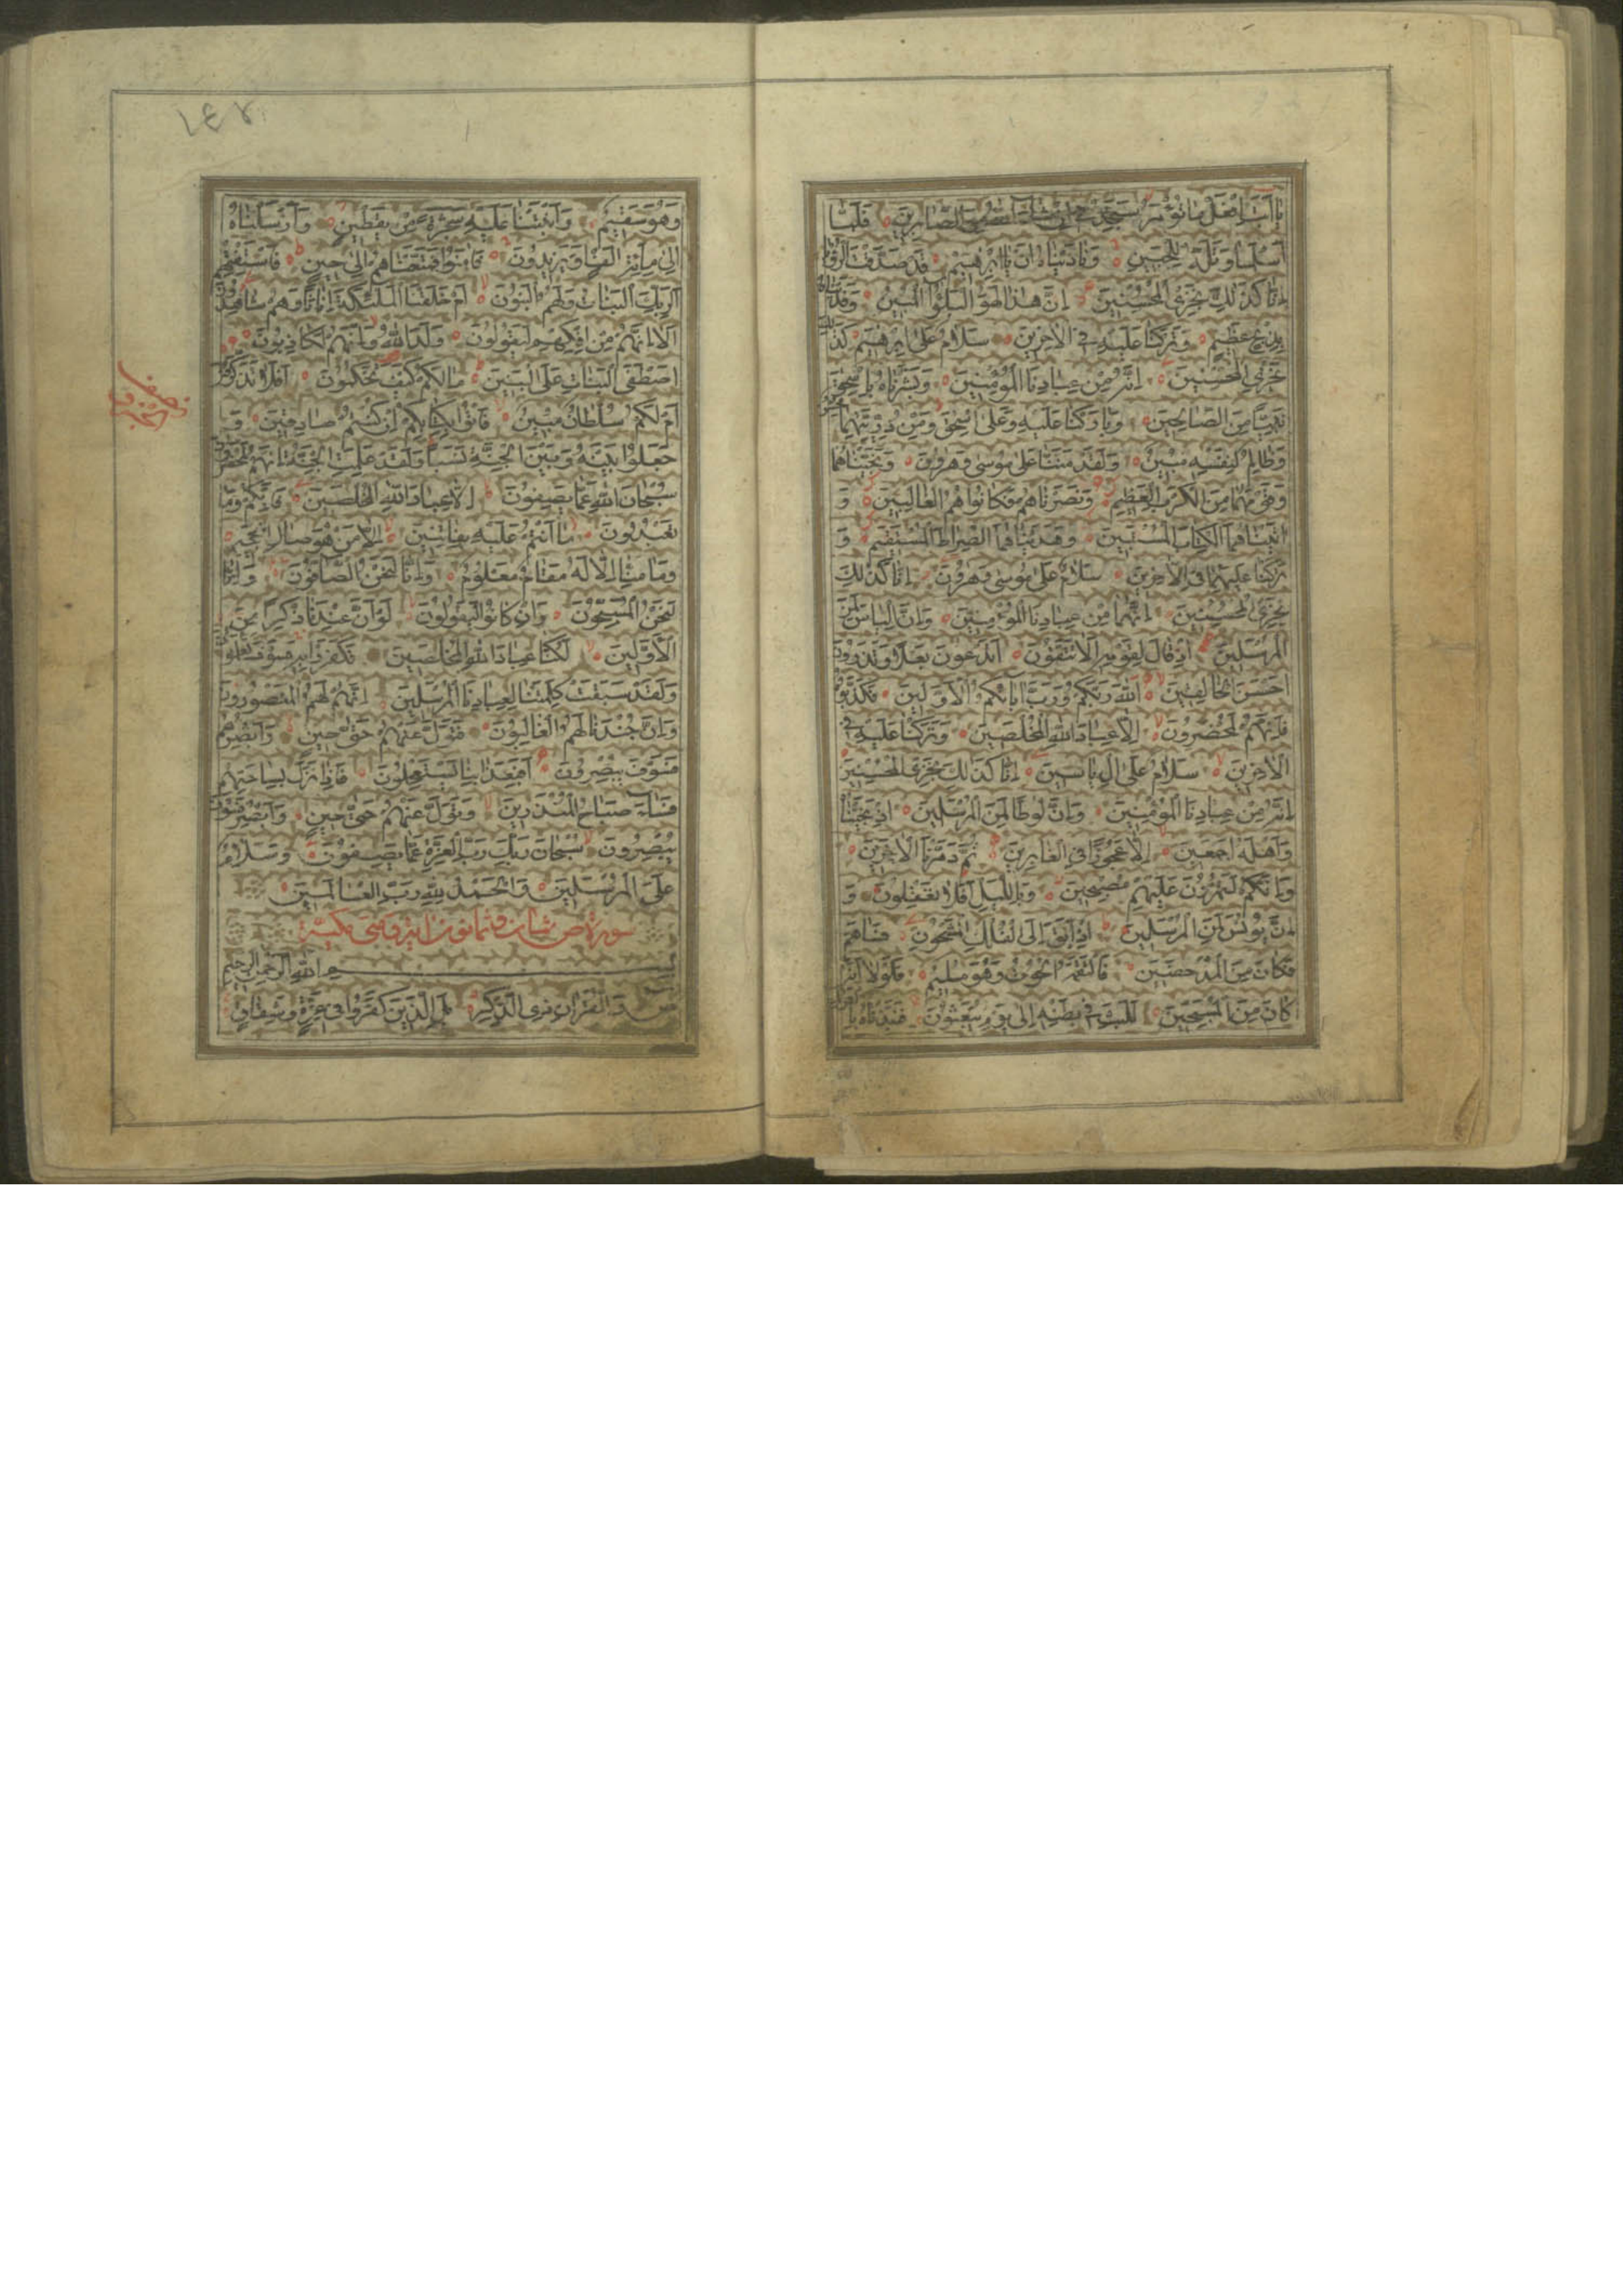 يا أبت افعل ما تؤمر ستجدني إن شاء الله من الصابرين فلما
أسلما وتله للجبين وناديناه ان يا ابرهيم قد صدقت الرؤيا
انا كذلك نجزي المحسنين ان هذا لهو البلؤا المبين وفديناه
بذبح عظيم وتركنا عليه في الآخرين سلام على ابرهيم كذلك
نجزي المحسنين انه من عبادنا المؤمنين وبشرناه باسحق
نبيا من الصالحين وباركنا عليه وعلى اسحق ومن ذريتهما محسن
وظالم لنفسه مبين ولقد مننا على موسى وهرون ونجيناهما
وقومهما من الكرب العظيم ونصرناهم فكانوا هم الغالبين و
اتيناهما الكتاب المستبين وهديناهما الصراط المستقيم و
تركنا عليهما في الآخرين سلام على موسى وهرون انا كذلك
نجزي المحسنين انهما من عبادنا المؤمنين وان الياس لمن
المرسلين اذ قال لقومه الا تتقون اتدعون بعلا وتذرون
احسن الخالقين الله ربكم ورب آبائكم الاولين فكذبوه
فانهم لمحضرون الا عباد الله المخلصين وتركنا عليه في
الآخرين سلام على ال ياسين انا كذلك نجزي المحسنين
انه من عبادنا المؤمنين وان لوطا لمن المرسلين اذ نجيناه
واهله اجمعين الا عجوزا في الغابرين ثم دمرنا الآخرين
وانكم لتمرون عليهم مصبحين وبالليل افلا تعقلون و
ان يونس لمن المرسلين اذ ابق الى الفلك المشحون فساهم
فكان من المدحضين فالتقمه الحوت وهو مليم فلولا انه
كان من المسبحين للبث في بطنه الى يوم يبعثون فنبذناه بالعراء
وهو سقيم وانبتنا عليه شجرة من يقطين وارسلناه
الى مائة الف او يزيدون فامنوا فمتعناهم الى حين فاستفتهم
الربك البنات ولهم البنون ام خلقنا الملئكة اناثا وهم شاهدون
الا انهم من افكهم ليقولون ولد الله وانهم لكاذبون
اصطفى البنات على البنين ما لكم كيف تحكمون افلا تذكرون
ام لكم سلطان مبين فأتوا بكتابكم ان كنتم صادقين و
جعلوا بينه وبين الجنة نسبا ولقد علمت الجنة انهم لمحضرون
سبحان الله عما يصفون الا عباد الله المخلصين فانكم وما
تعبدون ما انتم عليه بفاتنين الا من هو صال الجحيم
وما منا الا له مقام معلوم وانا لنحن الصافون وانا
لنحن المسبحون وان كانوا ليقولون لو ان عندنا ذكرا من
الاولين لكنا عباد الله المخلصين فكفروا به فسوف يعلمون
ولقد سبقت كلمتنا لعبادنا المرسلين انهم لهم المنصورون
وان جندنا لهم الغالبون فتول عنهم حتى حين وابصرهم
فسوف يبصرون افبعذابنا يستعجلون فاذا نزل بساحتهم
فساء صباح المنذرين وتول عنهم حتى حين وابصر فسوف
يبصرون سبحان ربك رب العزة عما يصفون وسلام
على المرسلين والحمد لله رب العالمين
سورة ص ثمان وثمانون اية وهي مكية
بسم الله الرحمن الرحيم
ص والقران ذي الذكر بل الذين كفروا في عزة وشقاق